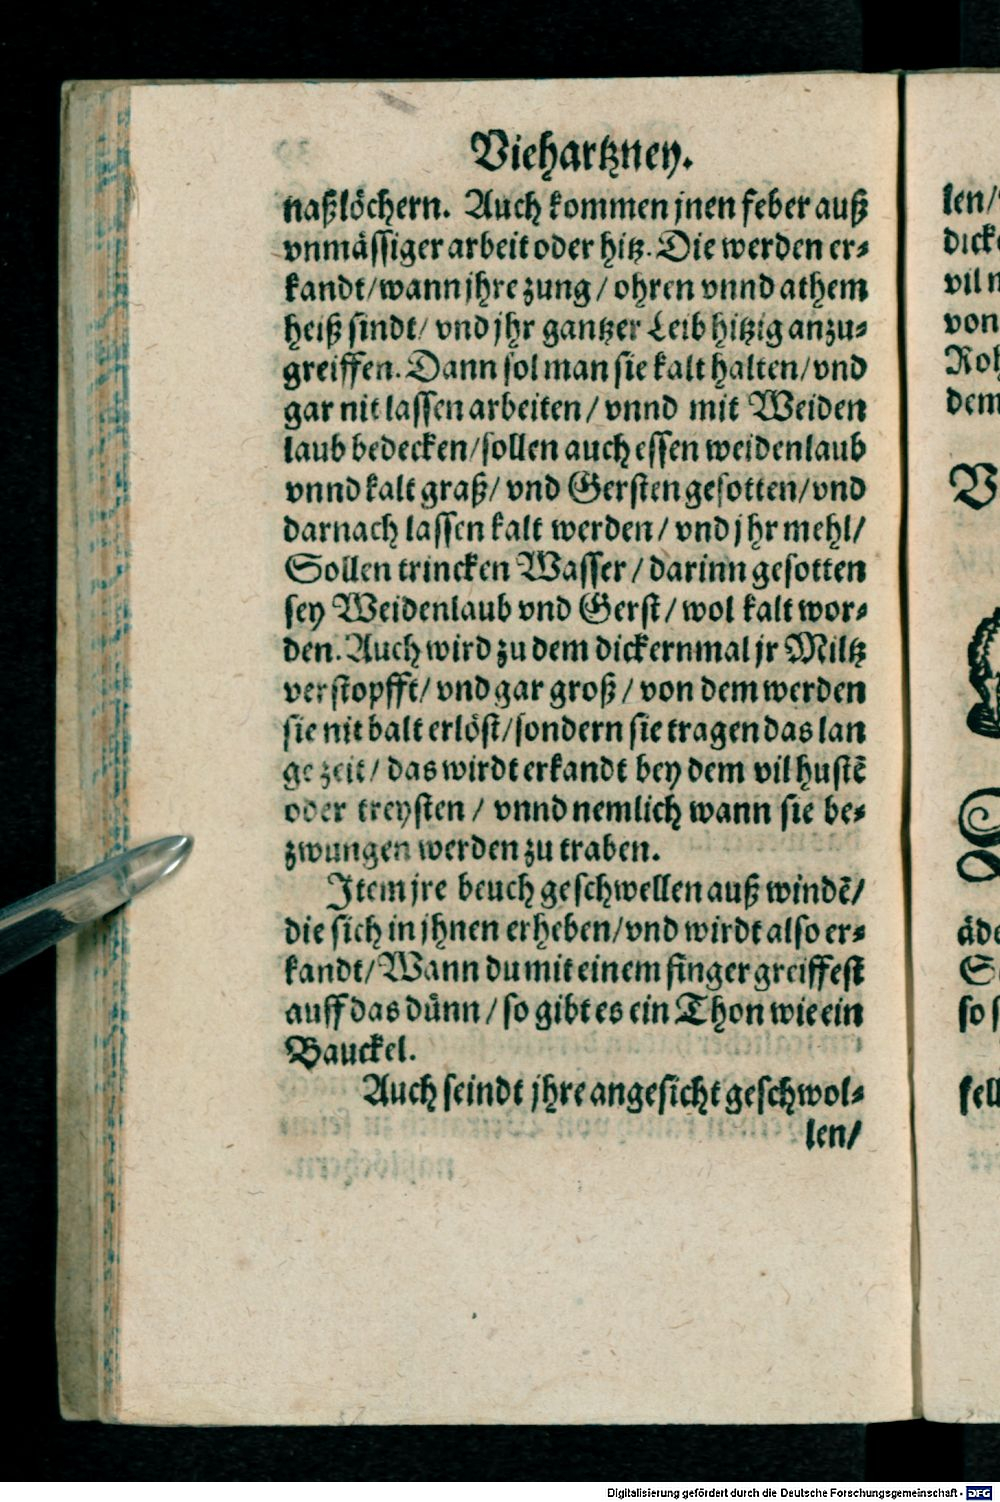 Viehartzney.
naßlöchern. Auch kommen jnen feber auß
vnmässiger arbeit oder hitz. Die werden er⸗
kandt/wann jhre zung / ohren vnnd athem
heiß sindt/ vnd jhr gantzer Leib hitzig anzu⸗
greiffen. Dann sol man sie kalt halten/vnd
gar nit lassen arbeiten / vnnd mit Weiden
laub bedecken/sollen auch essen weidenlaub
vnnd kalt graß/ vnd Gersten gesotten/vnd
darnach lassen kalt werden / vnd jhr mehl/
Sollen trincken Wasser / darinn gesotten
sey Weidenlaub vnd Gerst / wol kalt wor⸗
den. Auch wird zu dem dickernmal jr Miltz
verstopfft/ vnd gar groß / von dem werden
sie nit balt erlöst/sondern sie tragen das lan
ge zeit / das wirdt erkandt bey dem vil hustē
oder treysten / vnnd nemlich wann sie be⸗
zwungen werden zu traben.
Item jre beuch geschwellen auß windē/
die sich in jhnen erheben/vnd wirdt also er⸗
kandt/Wann du mit einem finger greiffest
auff das dünn / so gibt es ein Thon wie ein
Bauckel.
Auch seindt jhre angesicht geschwol⸗
len/
len/
dicke
vil n
von
Roh
dem
V
äde
so s
fell
Digitalisierung gefördert durch die Deutsche Forschungsgemeinschaft - DFG